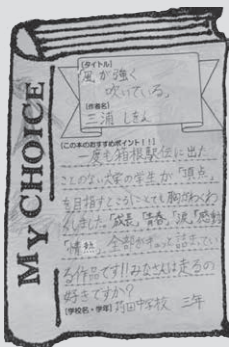 MY CHOICE
[タイトル]
風が強く
吹いている。
[作者名]
三浦しをん
[この本のおすすめポイント!!]
一度も箱根駅伝に出た
ことのない大学の学生が「頂点」
を目指すところにとても胸がわくわ
くしました。「成長」「青春」「涙」「感動」
「情熱」全部がギュッと詰まってい
る作品です!!みなさんは走るの
好きですか?
[学校名・学年] 苅田中学校 三年